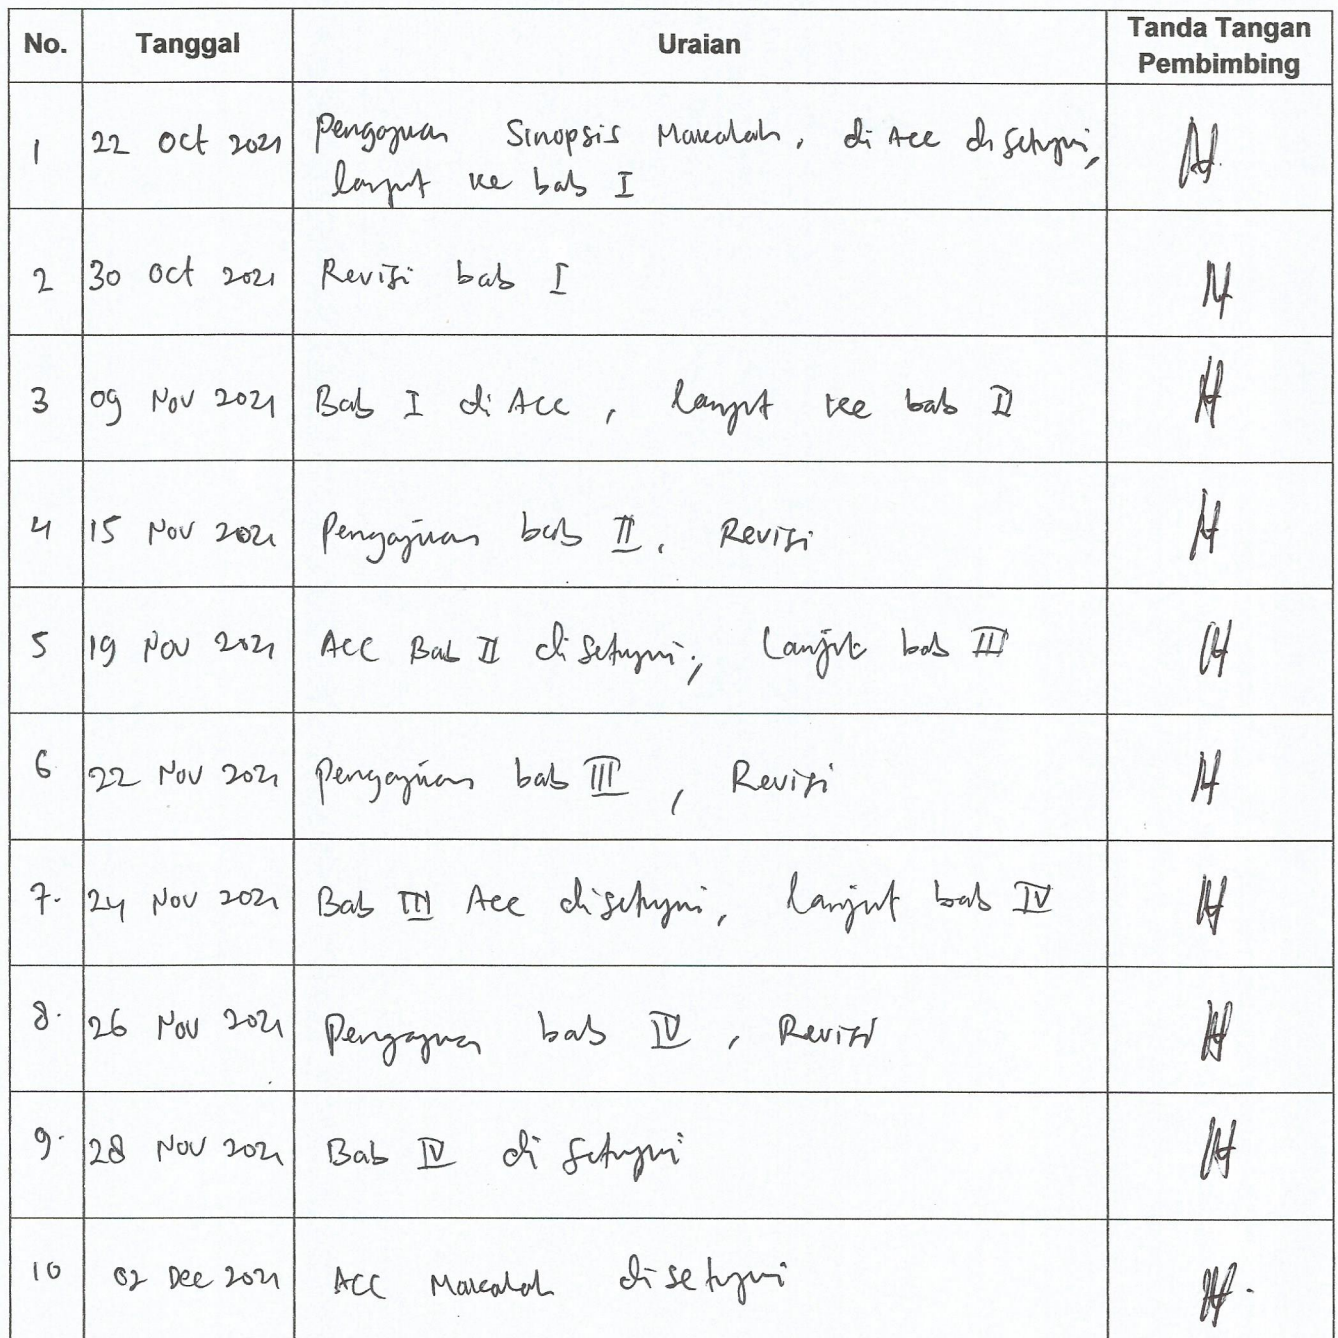 No. Tanggal Uraian Tanda Tangan
Pembimbing
1 22 Oct 2021 Pengajuan Sinopsis Makalah, di Acc disetujui,
lanjut ke bab I
2 30 Oct 2021 Revisi bab I
3 09 Nov 2021 Bab I di Acc, lanjut ke bab II
4 15 Nov 2021 Pengajuan bab II, Revisi
5 19 Nov 2021 ACC Bab II disetujui, Lanjut bab III
6 22 Nov 2021 Pengajuan bab III, Revisi
7. 24 Nov 2021 Bab III Acc disetujui, lanjut bab IV
8. 26 Nov 2021 Pengajuan bab IV, Revisi
9. 28 Nov 2021 Bab IV di setujui
10 02 Dec 2021 ACC Makalah disetujui